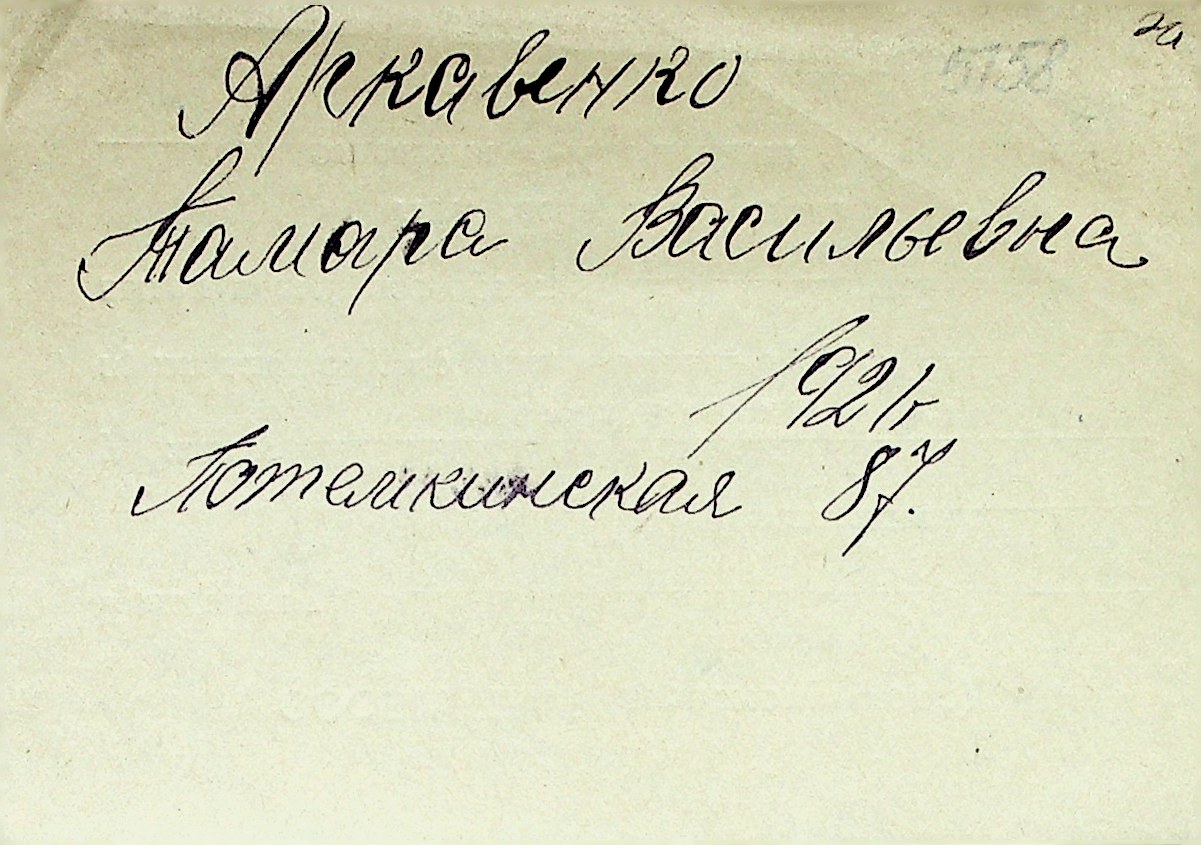 5758
Аркавенко
Тамара Васильевна
1921г
Потемкинская 87.